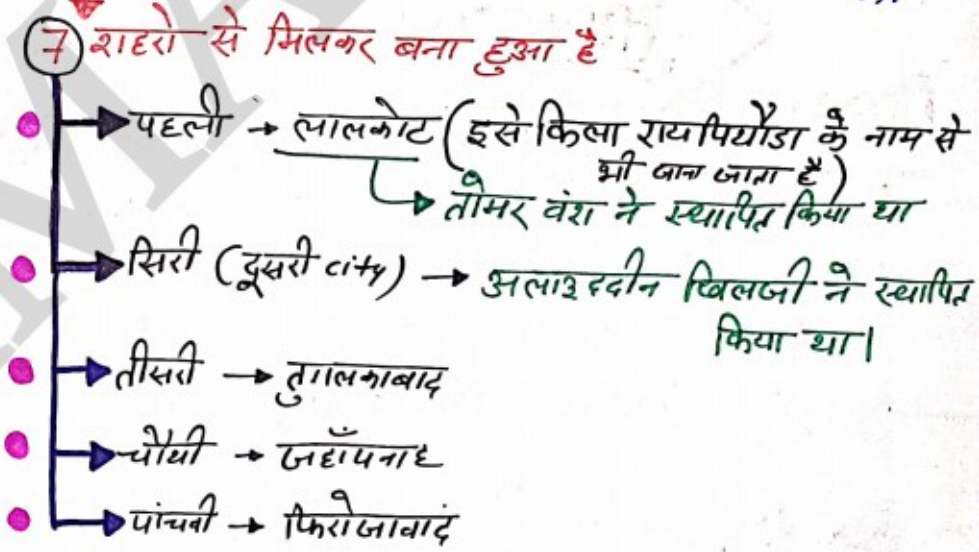 7 शहरो से मिलकर बना हुआ है
पहली → लालकोट (इसे किला रायपिथौडा के नाम से
भी जाना जाता है)
तोमर वंश ने स्थापित किया था
सिरी (दूसरी city) → अलाउददीन खिलजी ने स्थापित
किया था।
तीसरी → तुगलकाबाद
चौथी → जहाँपनाह
पांचवी → फिरोजाबाद